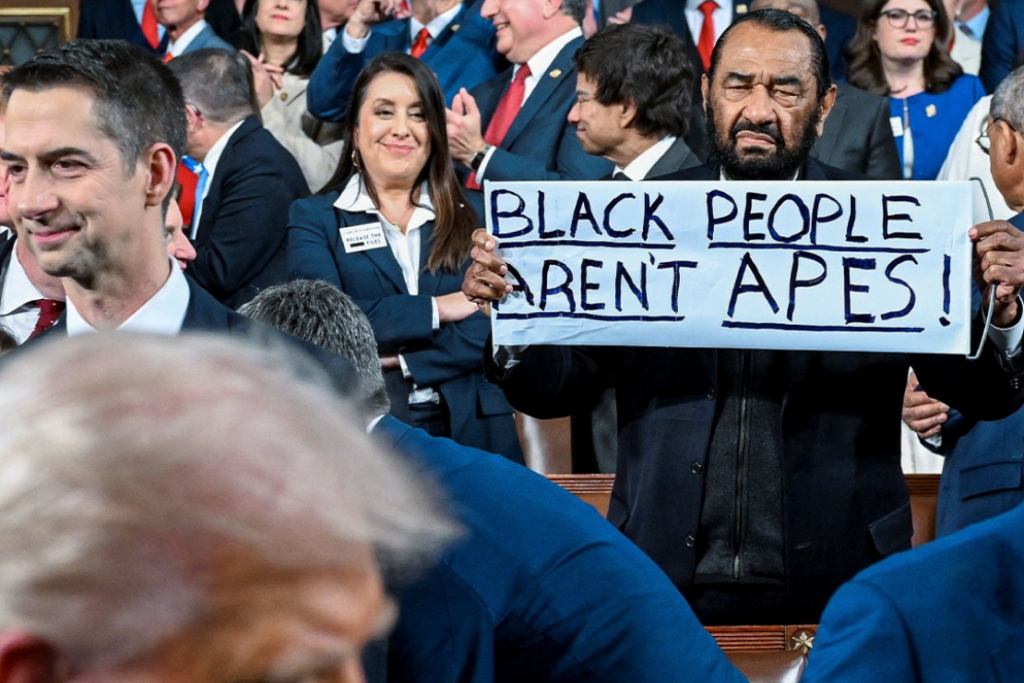 RELEASE THE
FILES
BLACK PEOPLE
AREN'T APES!